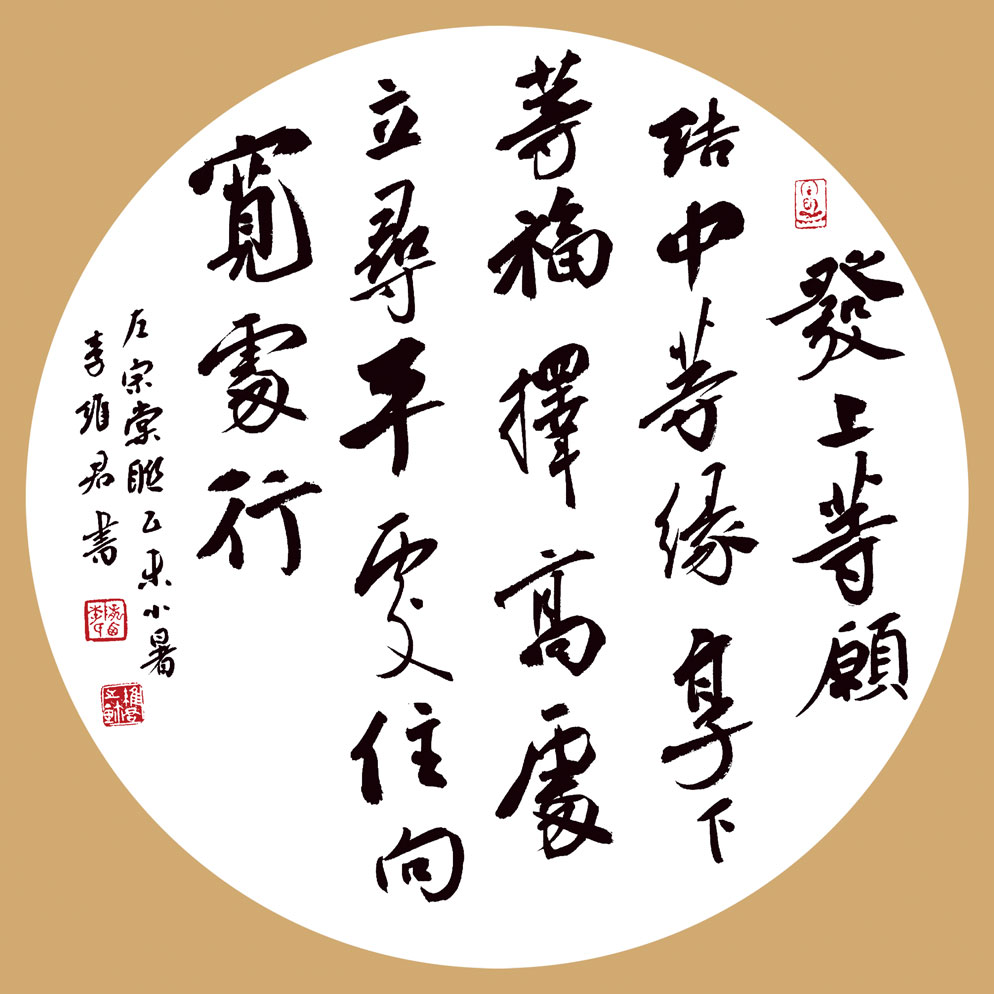 發上等願
结中等缘享下
等福擇高處
立尋平处住向
寬處行
左宗棠联乙未小暑
李維君書